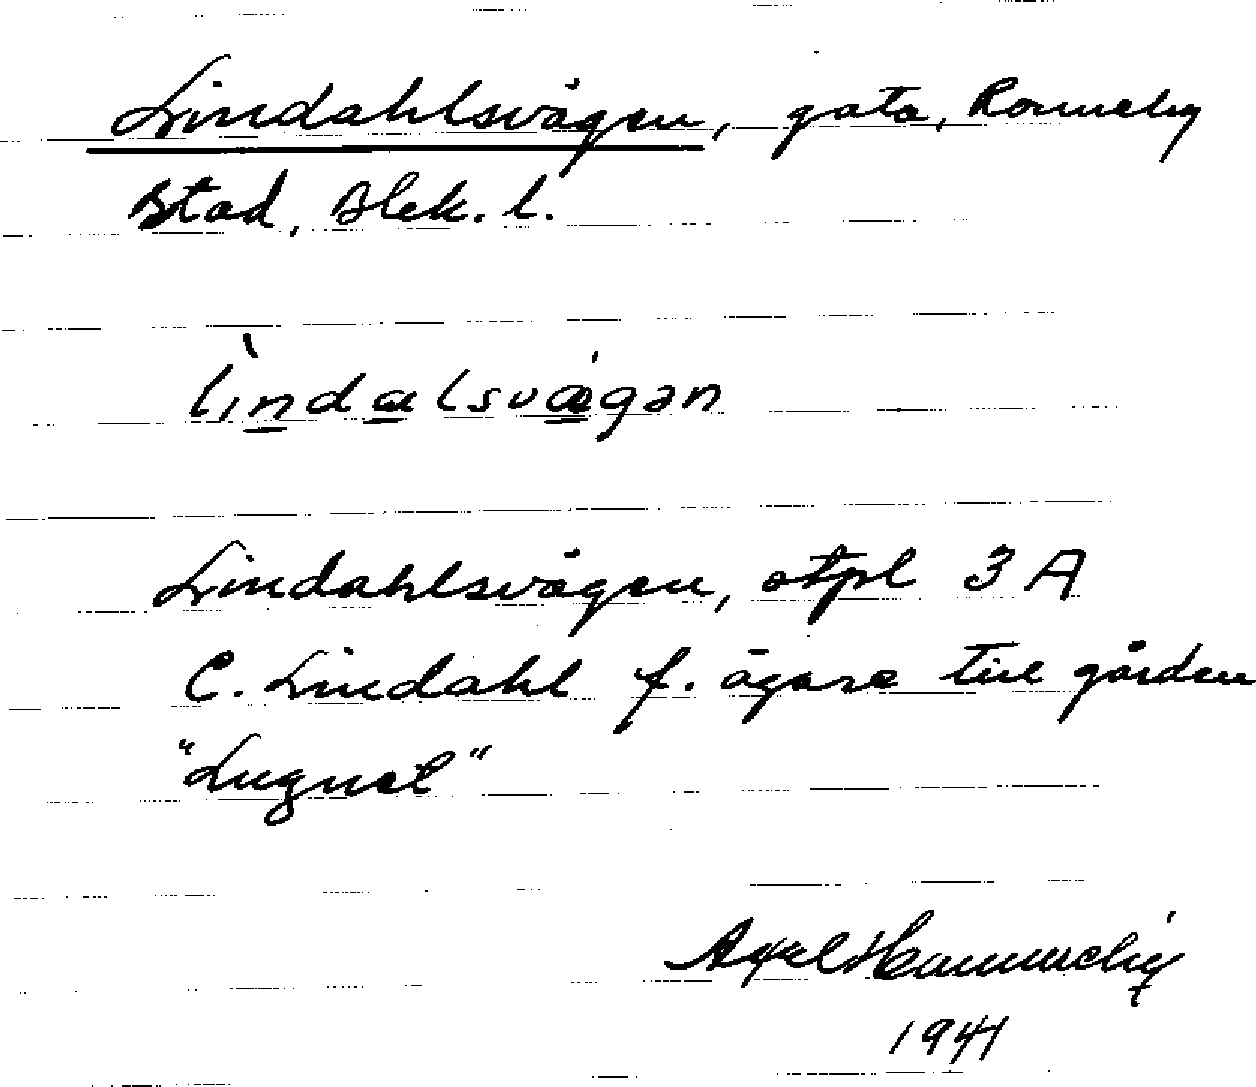 Lindahlsvägen, gata, Ronneby
stad, Blek. l.
lìndalsvǽgən
Lindahlsvägen, stpl 3 A
C. Lindahl f. ägare till gården
"Lugnet"
Axel
1941